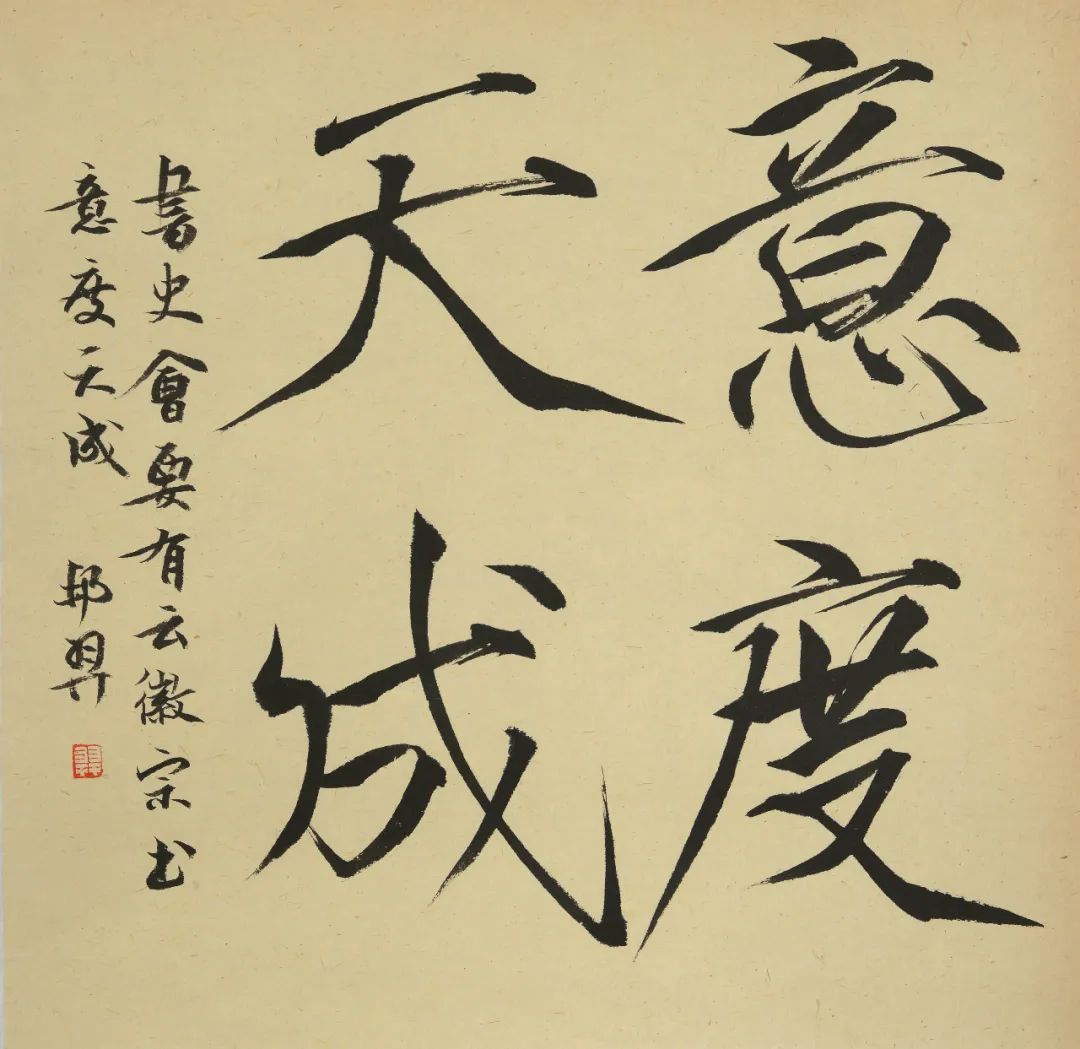 意度
天成
書史會要有云徽宗书
意度天成 邦羿